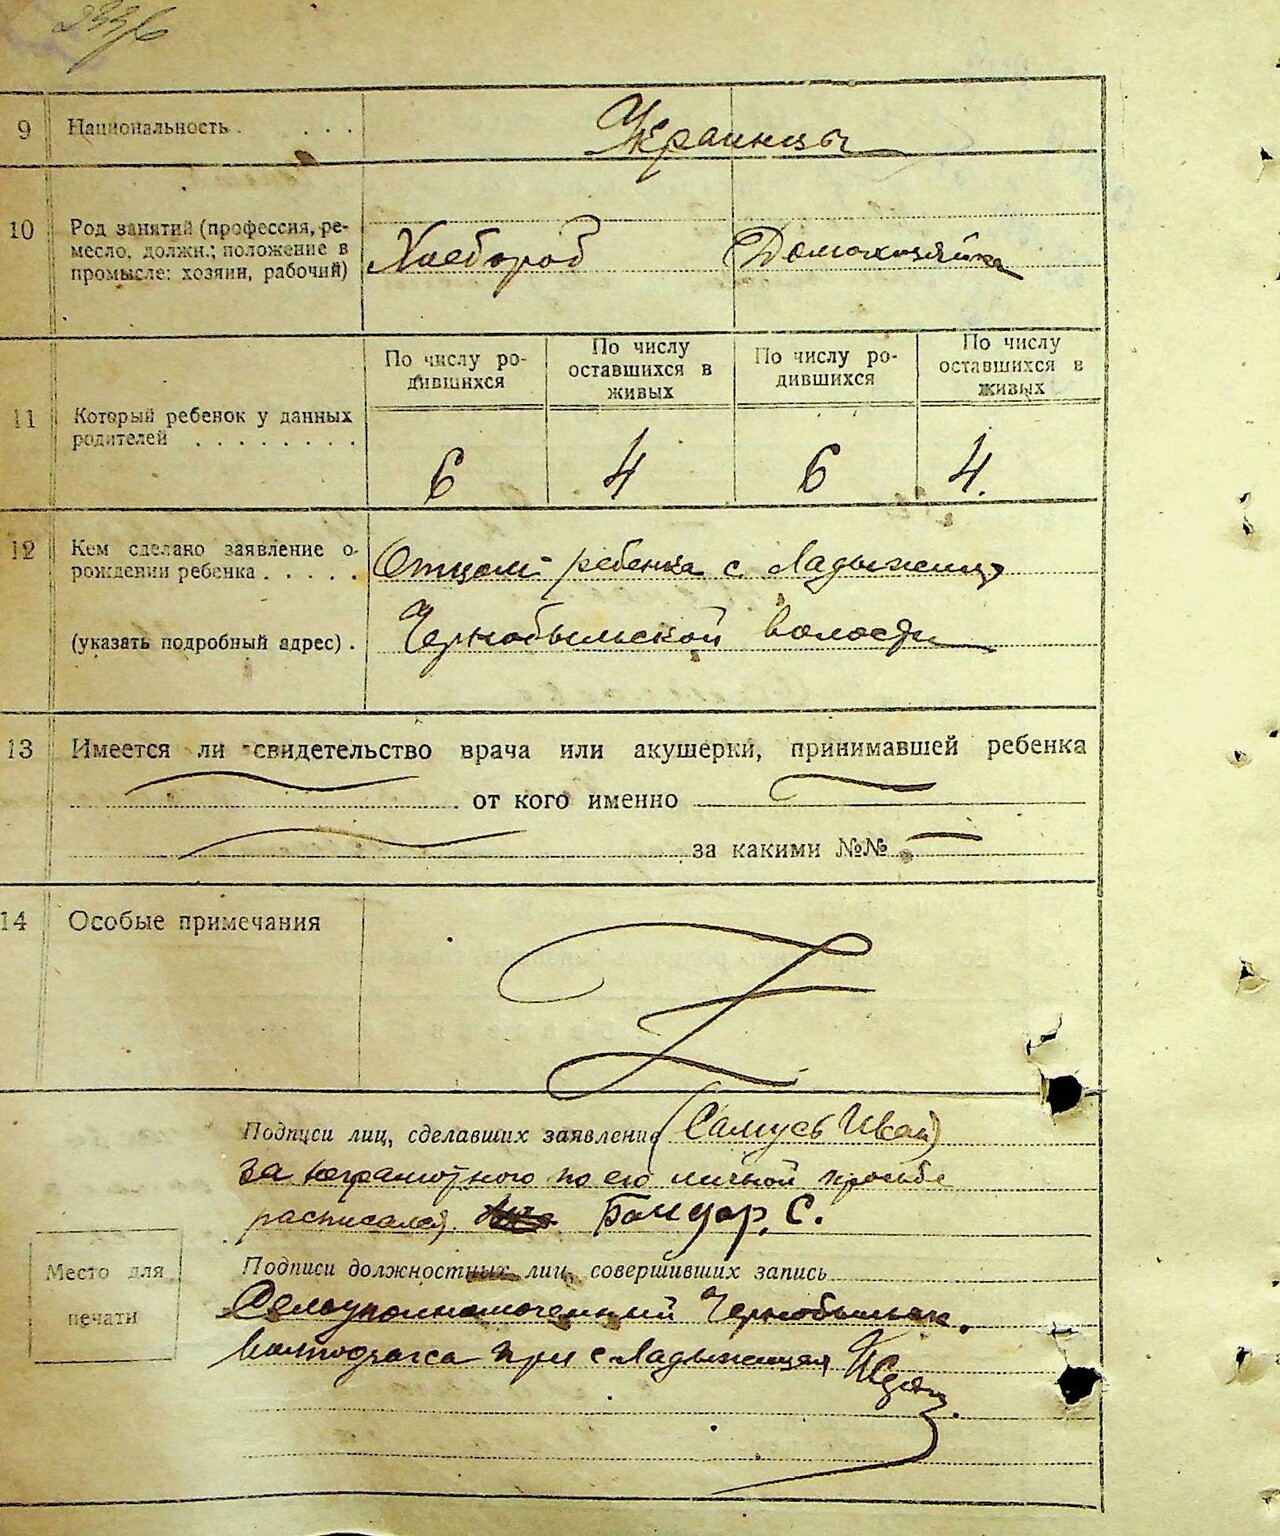 9 Национальность . . . . Украинцы
10 Род занятий (профессия, ре-
месло, должн.; положение в
промысле: хозяин, рабочий)
Хлебороб Домохозяйка
По числу ро-
дившихся
По числу
оставшихся в
живых
По числу ро-
дившихся
По числу
оставшихся в
живых
11 Который ребенок у данных
родителей . . . . . . . .
6 4 6 4.
12 Кем сделано заявление о
рождении ребенка . . . . .
Отцом ребенка с. Ладыжичи
(указать подробный адрес) . Чернобыльской волости
13 Имеется ли свидетельство врача или акушерки, принимавшей ребенка
от кого именно
за какими №№
14 Особые примечания
Подписи лиц, сделавших заявление (Самусь Иван)
за неграмотного по его личной просьбе
расписался Бондар, С.
Подписи должностных лиц, совершивших запись
Место для
печати
Селоуполномоченный Чернобыльск.
при с Ладыжичах